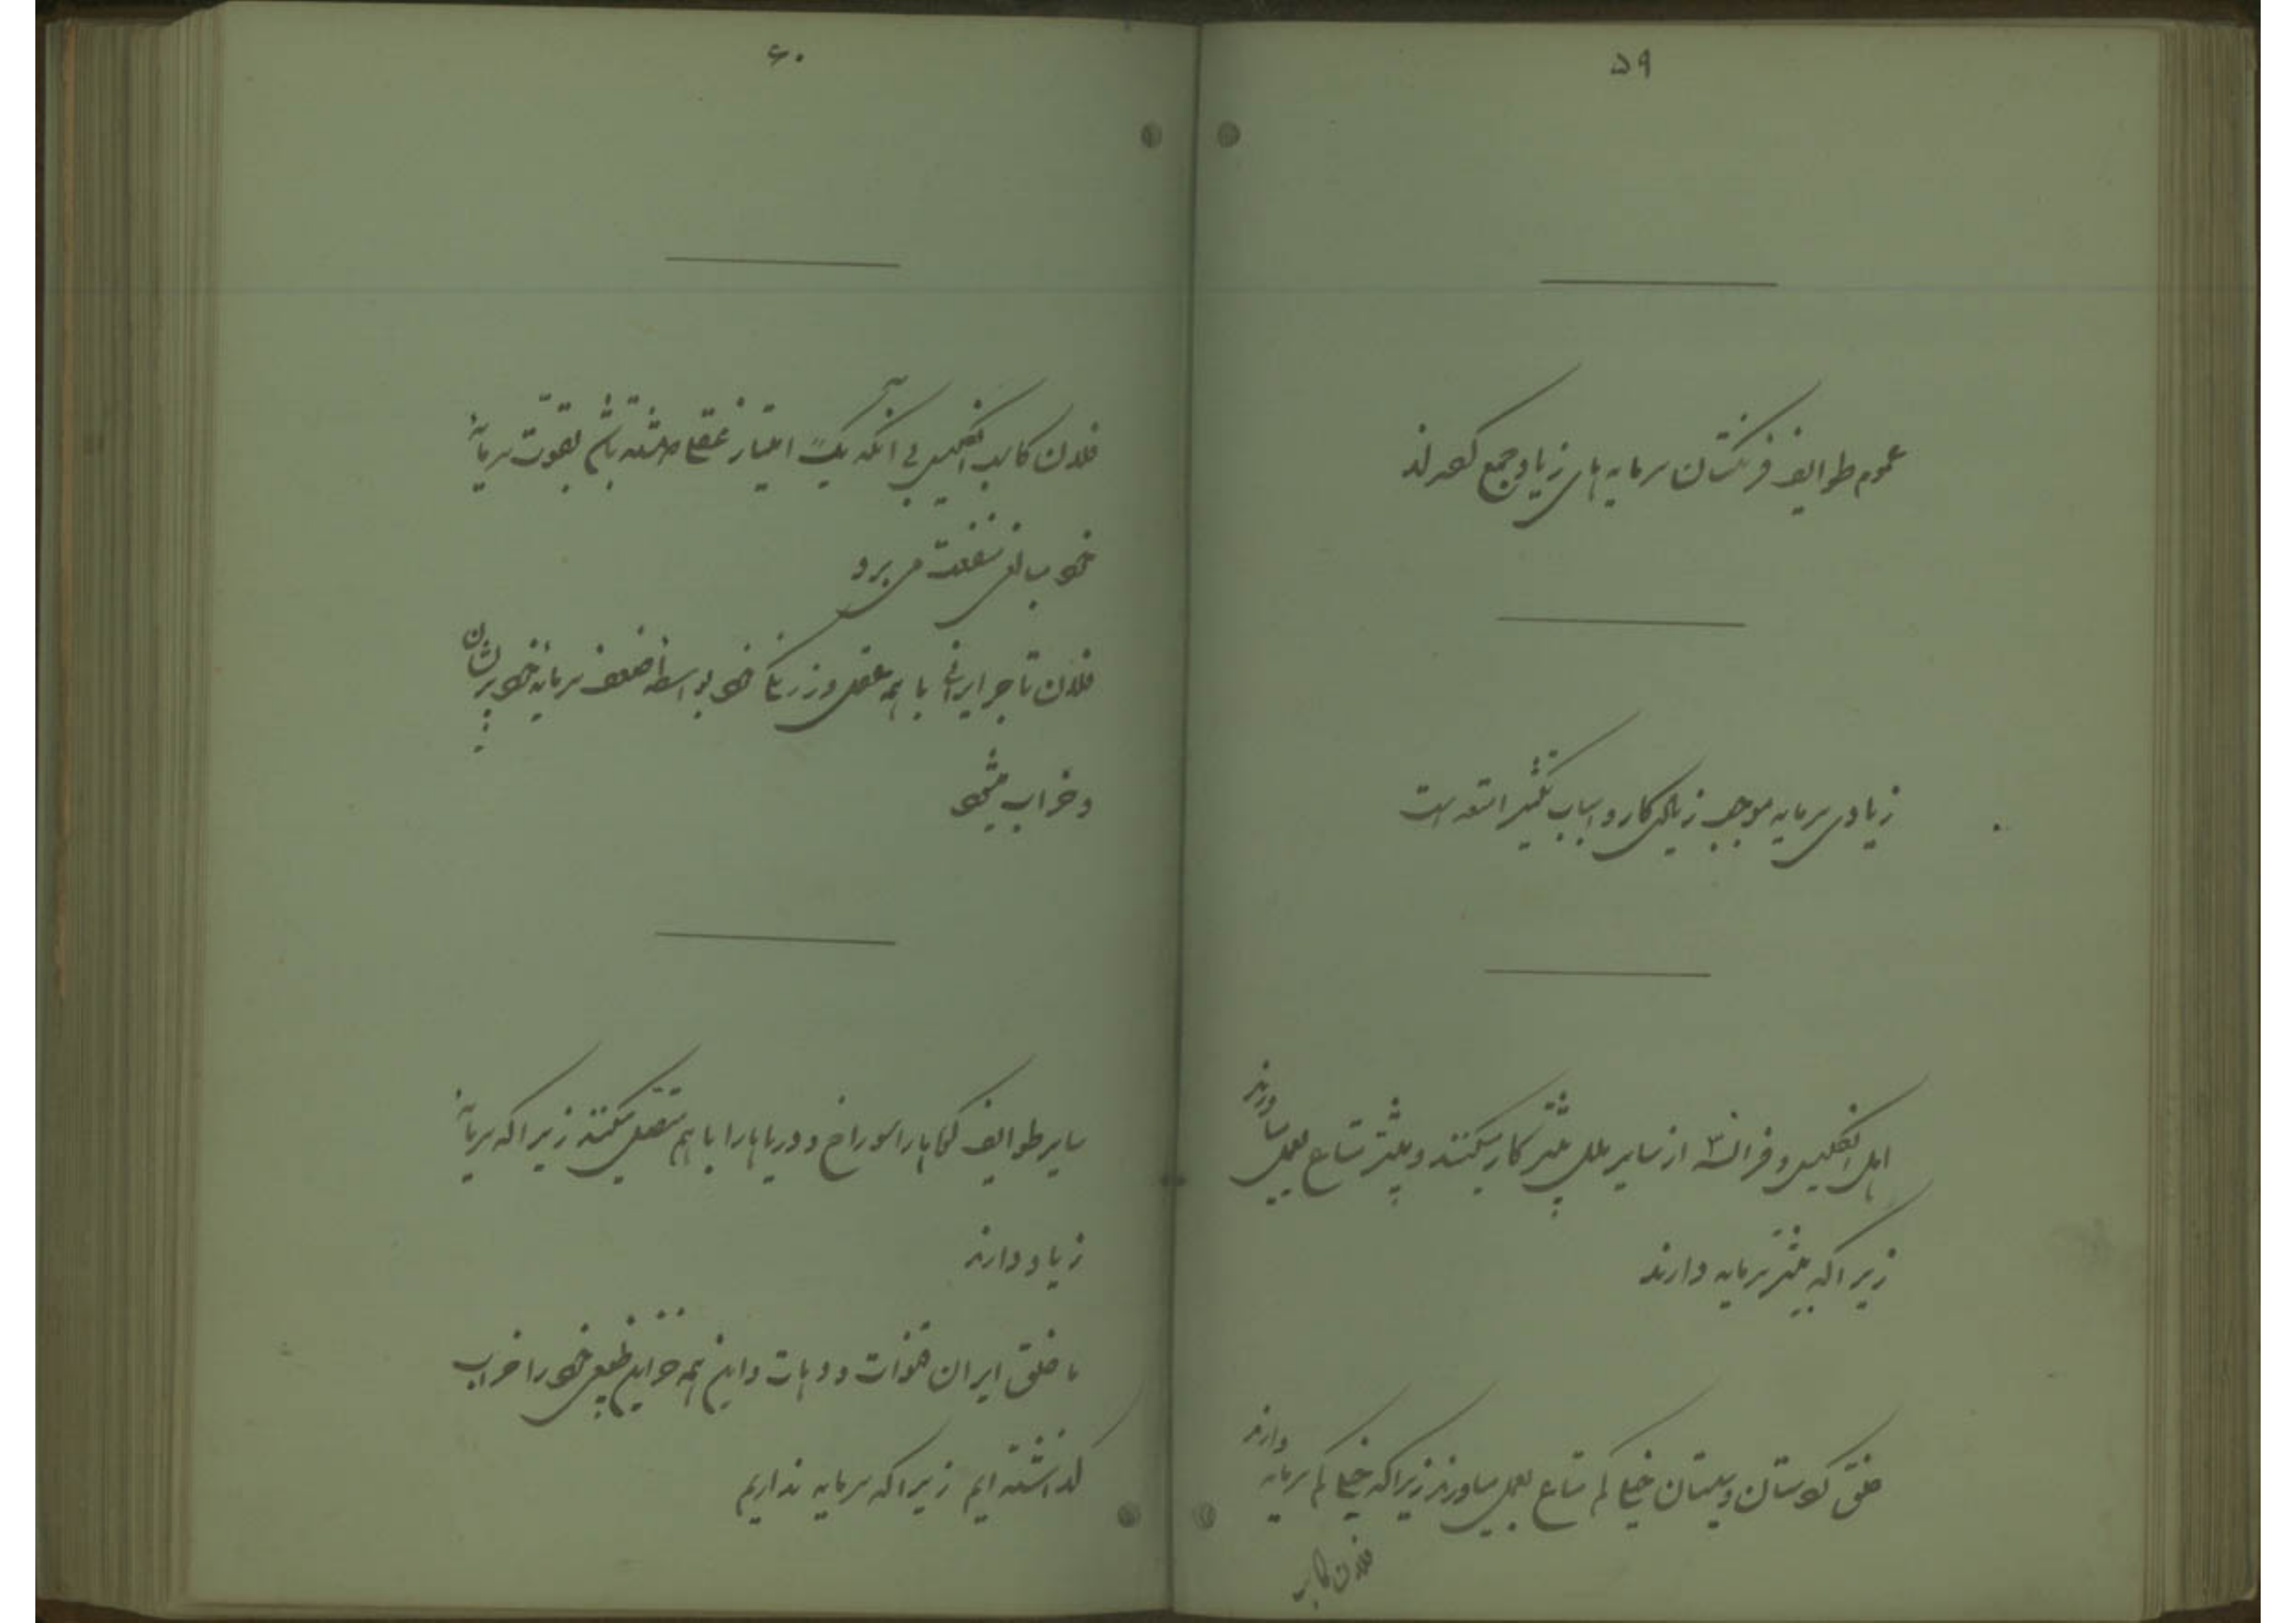 ۵۹
عموم طوایف فرنگستان سرمایه های زیاد جمع کرده اند
زیادی سرمایه موجب زیادی کار و اسباب تکثیر امتعه است
اهل انگلیس و فرانسه از سایر ملل بیشتر کار میکنند و بیشتر متاع بعمل میاورند
زیرا که بیشتر سرمایه دارند
خلق کردستان و سیستان خیلی کم متاع بعمل میاورند زیرا که خیلی کم سرمایه دارند
فلان کاسب
۶۰
فلان کاسب انگلیسی بی آنکه یک امتیاز عقلی داشته باشد بقوت سرمایهٔ
خود مبالغی منفعت می برد
فلان تاجر ایرانی با همه عقل و زرنگی خود بواسطهٔ ضعف سرمایهٔ خود پریشان
و خراب میشود
سایر طوایف کوهها را سوراخ و دریاها را با هم متصل میکنند زیرا که سرمایهٔ
زیاد دارند
ما خلق ایران قنوات و دهات و این همه خزاین طبیعی خود را خراب
گذاشته ایم زیرا که سرمایه نداریم